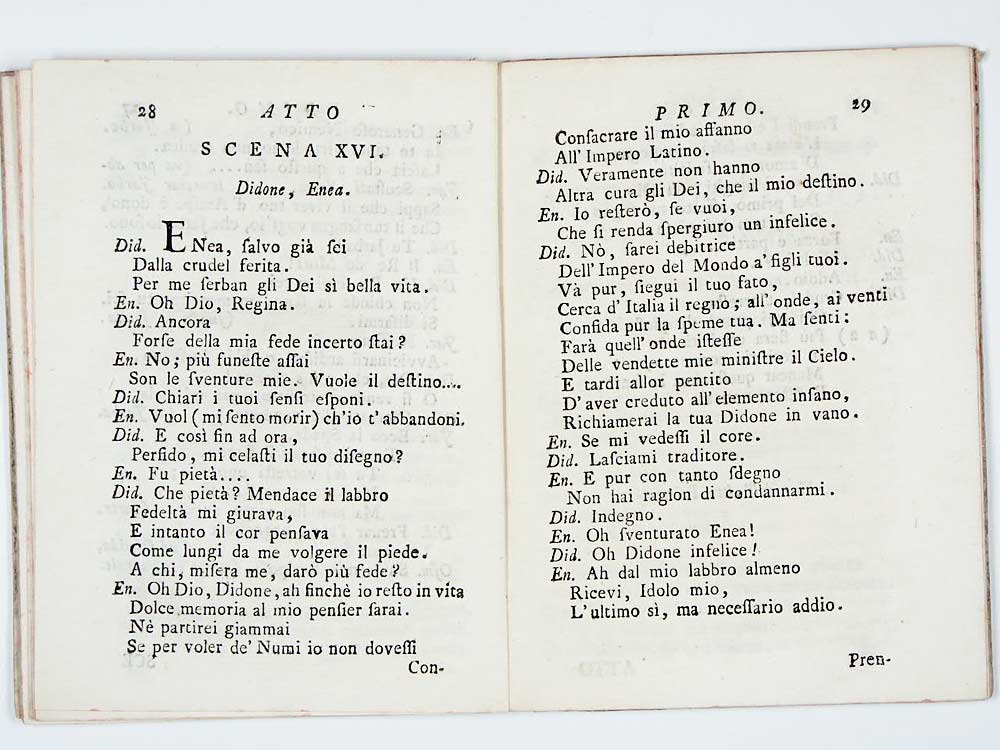 28 ATTO
SCENA XVI.
Didone, Enea.
Did. ENea, ſalvo già ſei
Dalla crudel ferita.
Per me ſerban gli Dei sì bella vita.
En. Oh Dio, Regina.
Did. Ancora
Forſe della mia fede incerto ſtai?
En. No; più funeſte aſſai
Son le ſventure mie. Vuole il deſtino....
Did. Chiari i tuoi ſenſi eſponi.
En. Vuol (mi ſento morir) ch'io t'abbandoni.
Did. E così fin ad ora,
Perfido, mi celaſti il tuo diſegno?
En. Fu pietà....
Did. Che pietà? Mendace il labbro
Fedeltà mi giurava,
E intanto il cor penſava
Come lungi da me volgere il piede.
A chi, miſera me, darò più fede?
En. Oh Dio, Didone, ah finchè io reſto in vita
Dolce memoria al mio penſier ſarai.
Nè partirei giammai
Se per voler de' Numi io non doveſſi
Con-
PRIMO. 29
Conſacrare il mio affanno
All' Impero Latino.
Did. Veramente non hanno
Altra cura gli Dei, che il mio deſtino.
En. Io reſterò, ſe vuoi,
Che ſi renda ſpergiuro un infelice.
Did. Nò, ſarei debitrice
Dell' Impero del Mondo a' figli tuoi.
Và pur, ſiegui il tuo fato,
Cerca d' Italia il regno; all' onde, ai venti
Confida pur la ſpeme tua. Ma ſenti:
Farà quell' onde iſteſſe
Delle vendette mie miniſtre il Cielo.
E tardi allor pentito
D' aver creduto all' elemento inſano,
Richiamerai la tua Didone in vano.
En. Se mi vedeſſi il core.
Did. Laſciami traditore.
En. E pur con tanto ſdegno
Non hai ragion di condannarmi.
Did. Indegno.
En. Oh ſventurato Enea!
Did. Oh Didone infelice!
En. Ah dal mio labbro almeno
Ricevi, Idolo mio,
L' ultimo sì, ma neceſſario addio.
Pren-